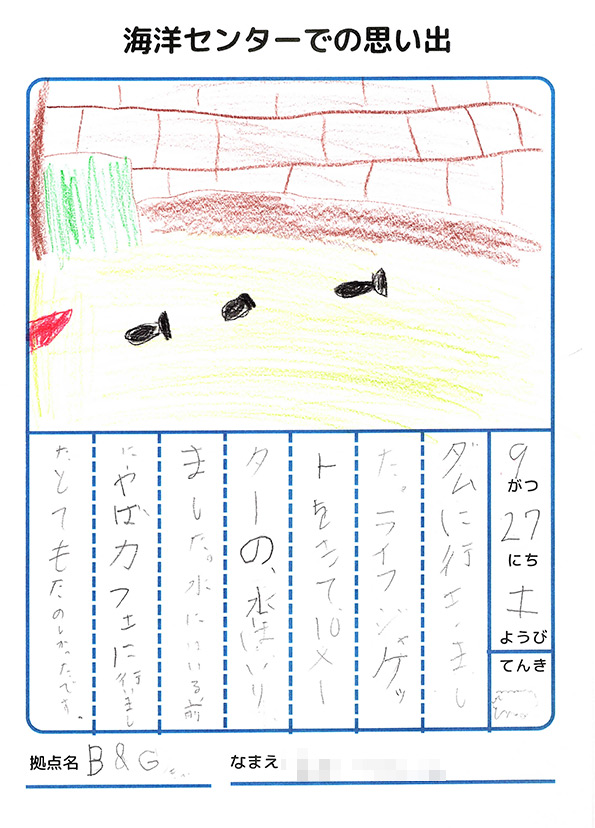 海洋センターでの思い出
9がつ
27にち
土ようび
てんき
ダムに行きまし
た。ライフジャケッ
トをきて、10メー
ターの、水はいり
ました。水にはいる前
にやばカフェに行いまし
たとてもたのしかったです。
拠点名 B&G
なまえ